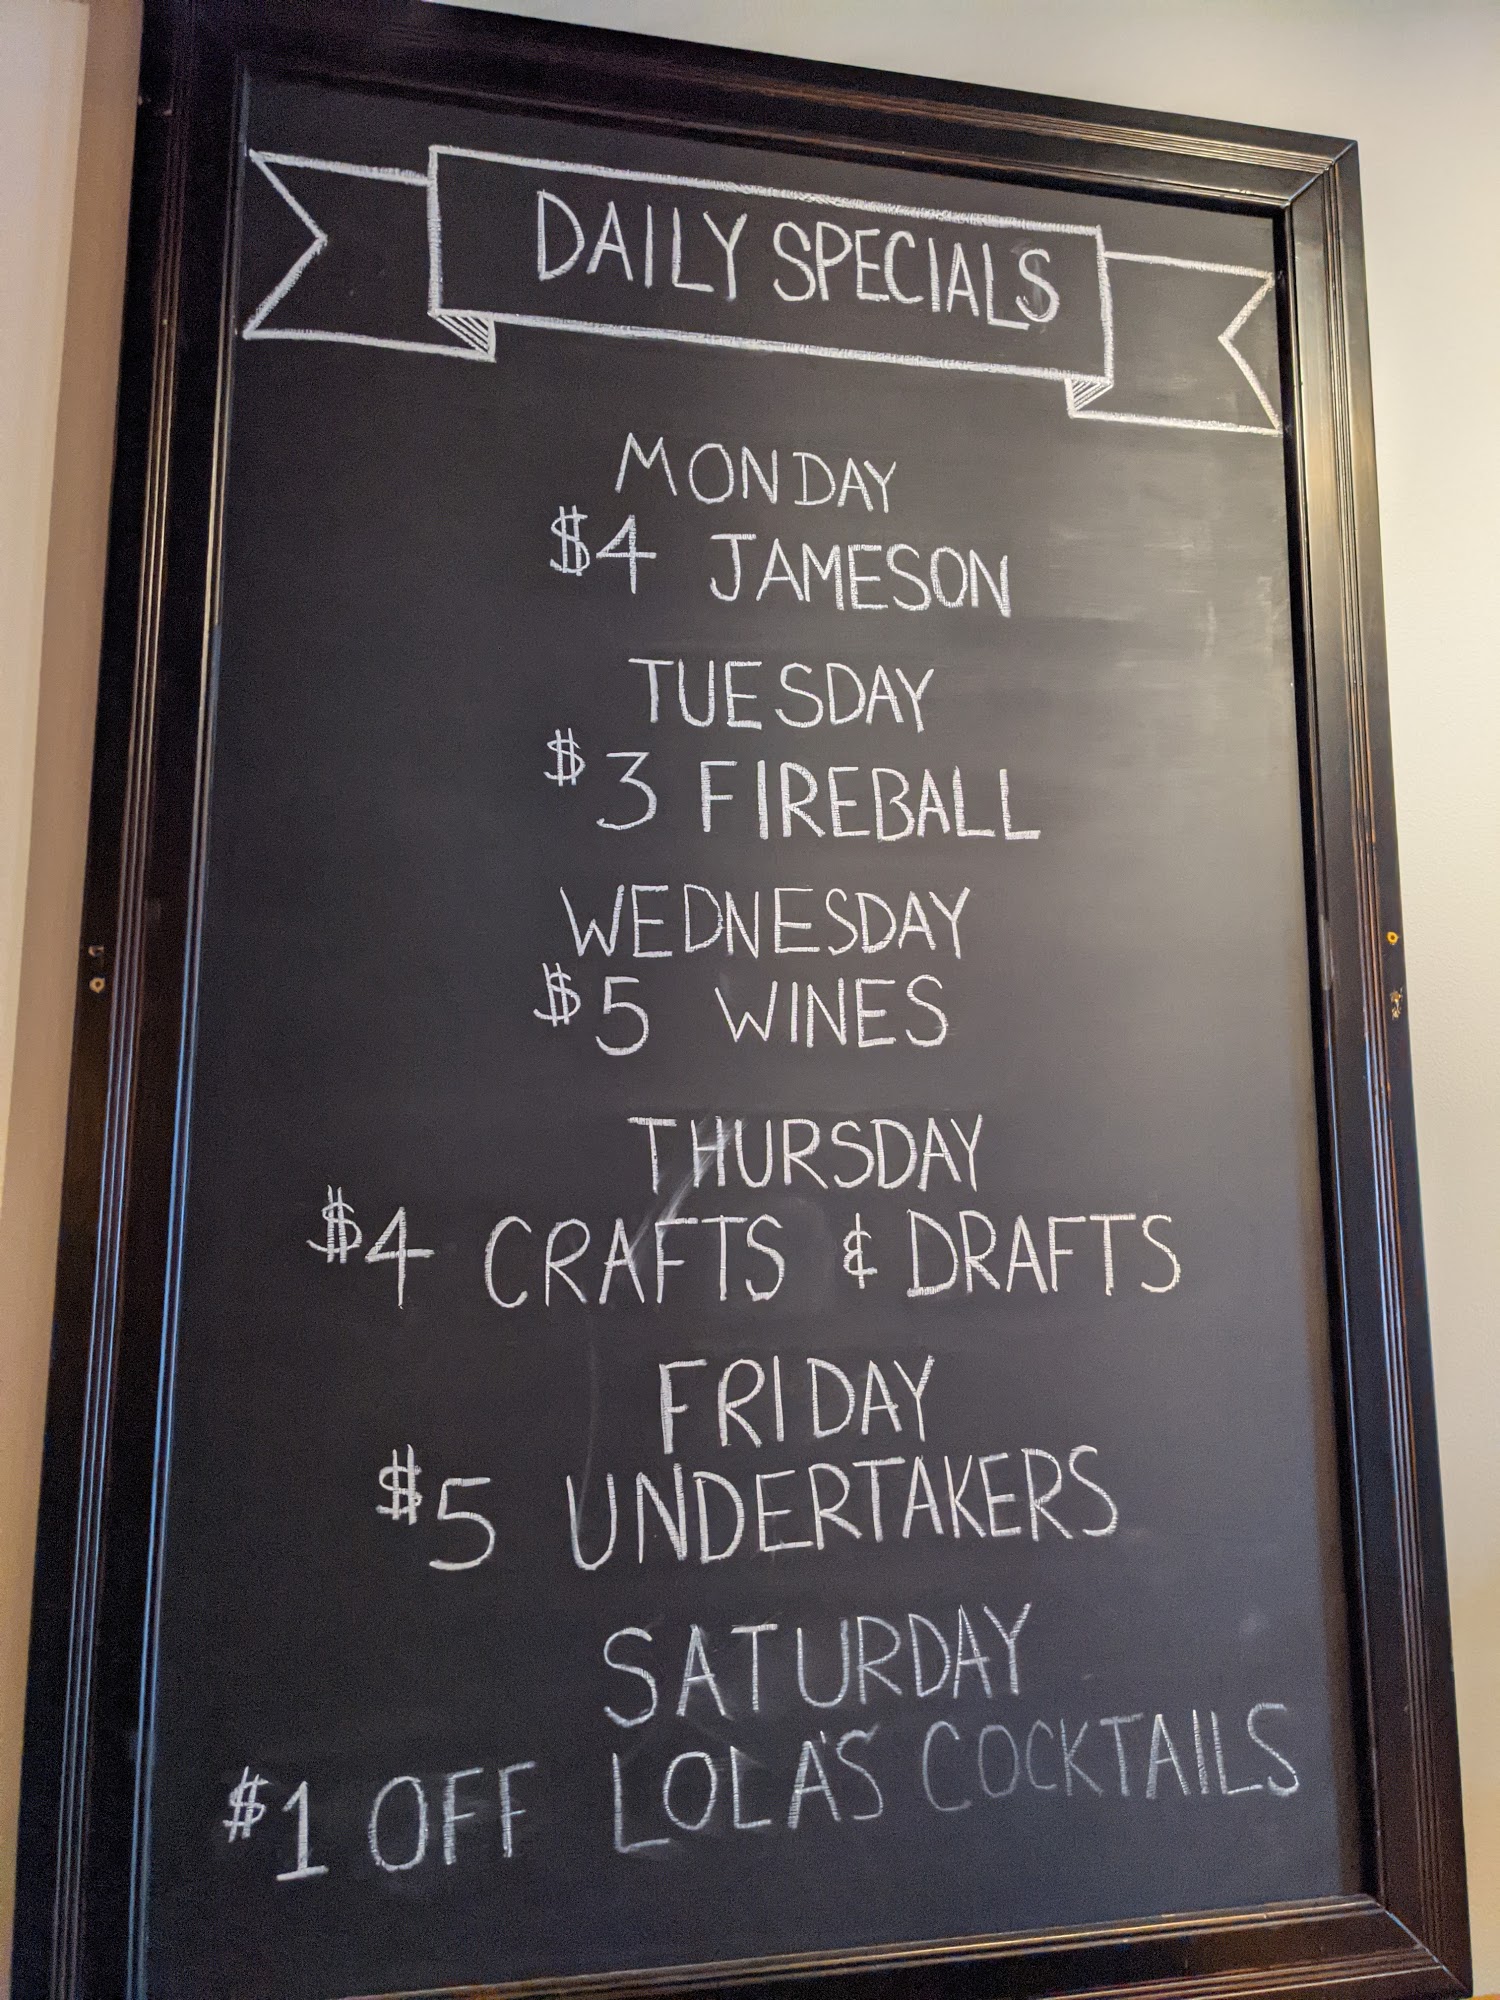 DAILY SPECIALS
MONDAY
$4 JAMESON
TUESDAY
$3 FIREBALL
WEDNESDAY
$5 WINES
THURSDAY
$4 CRAFTS & DRAFTS
FRIDAY
$5 UNDERTAKERS
SATURDAY
$1 OFF LOLA'S COCKTAILS